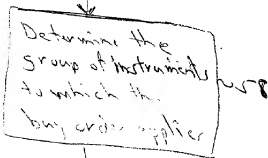 Determine the
group of instruments 58
to which the
buy order applies